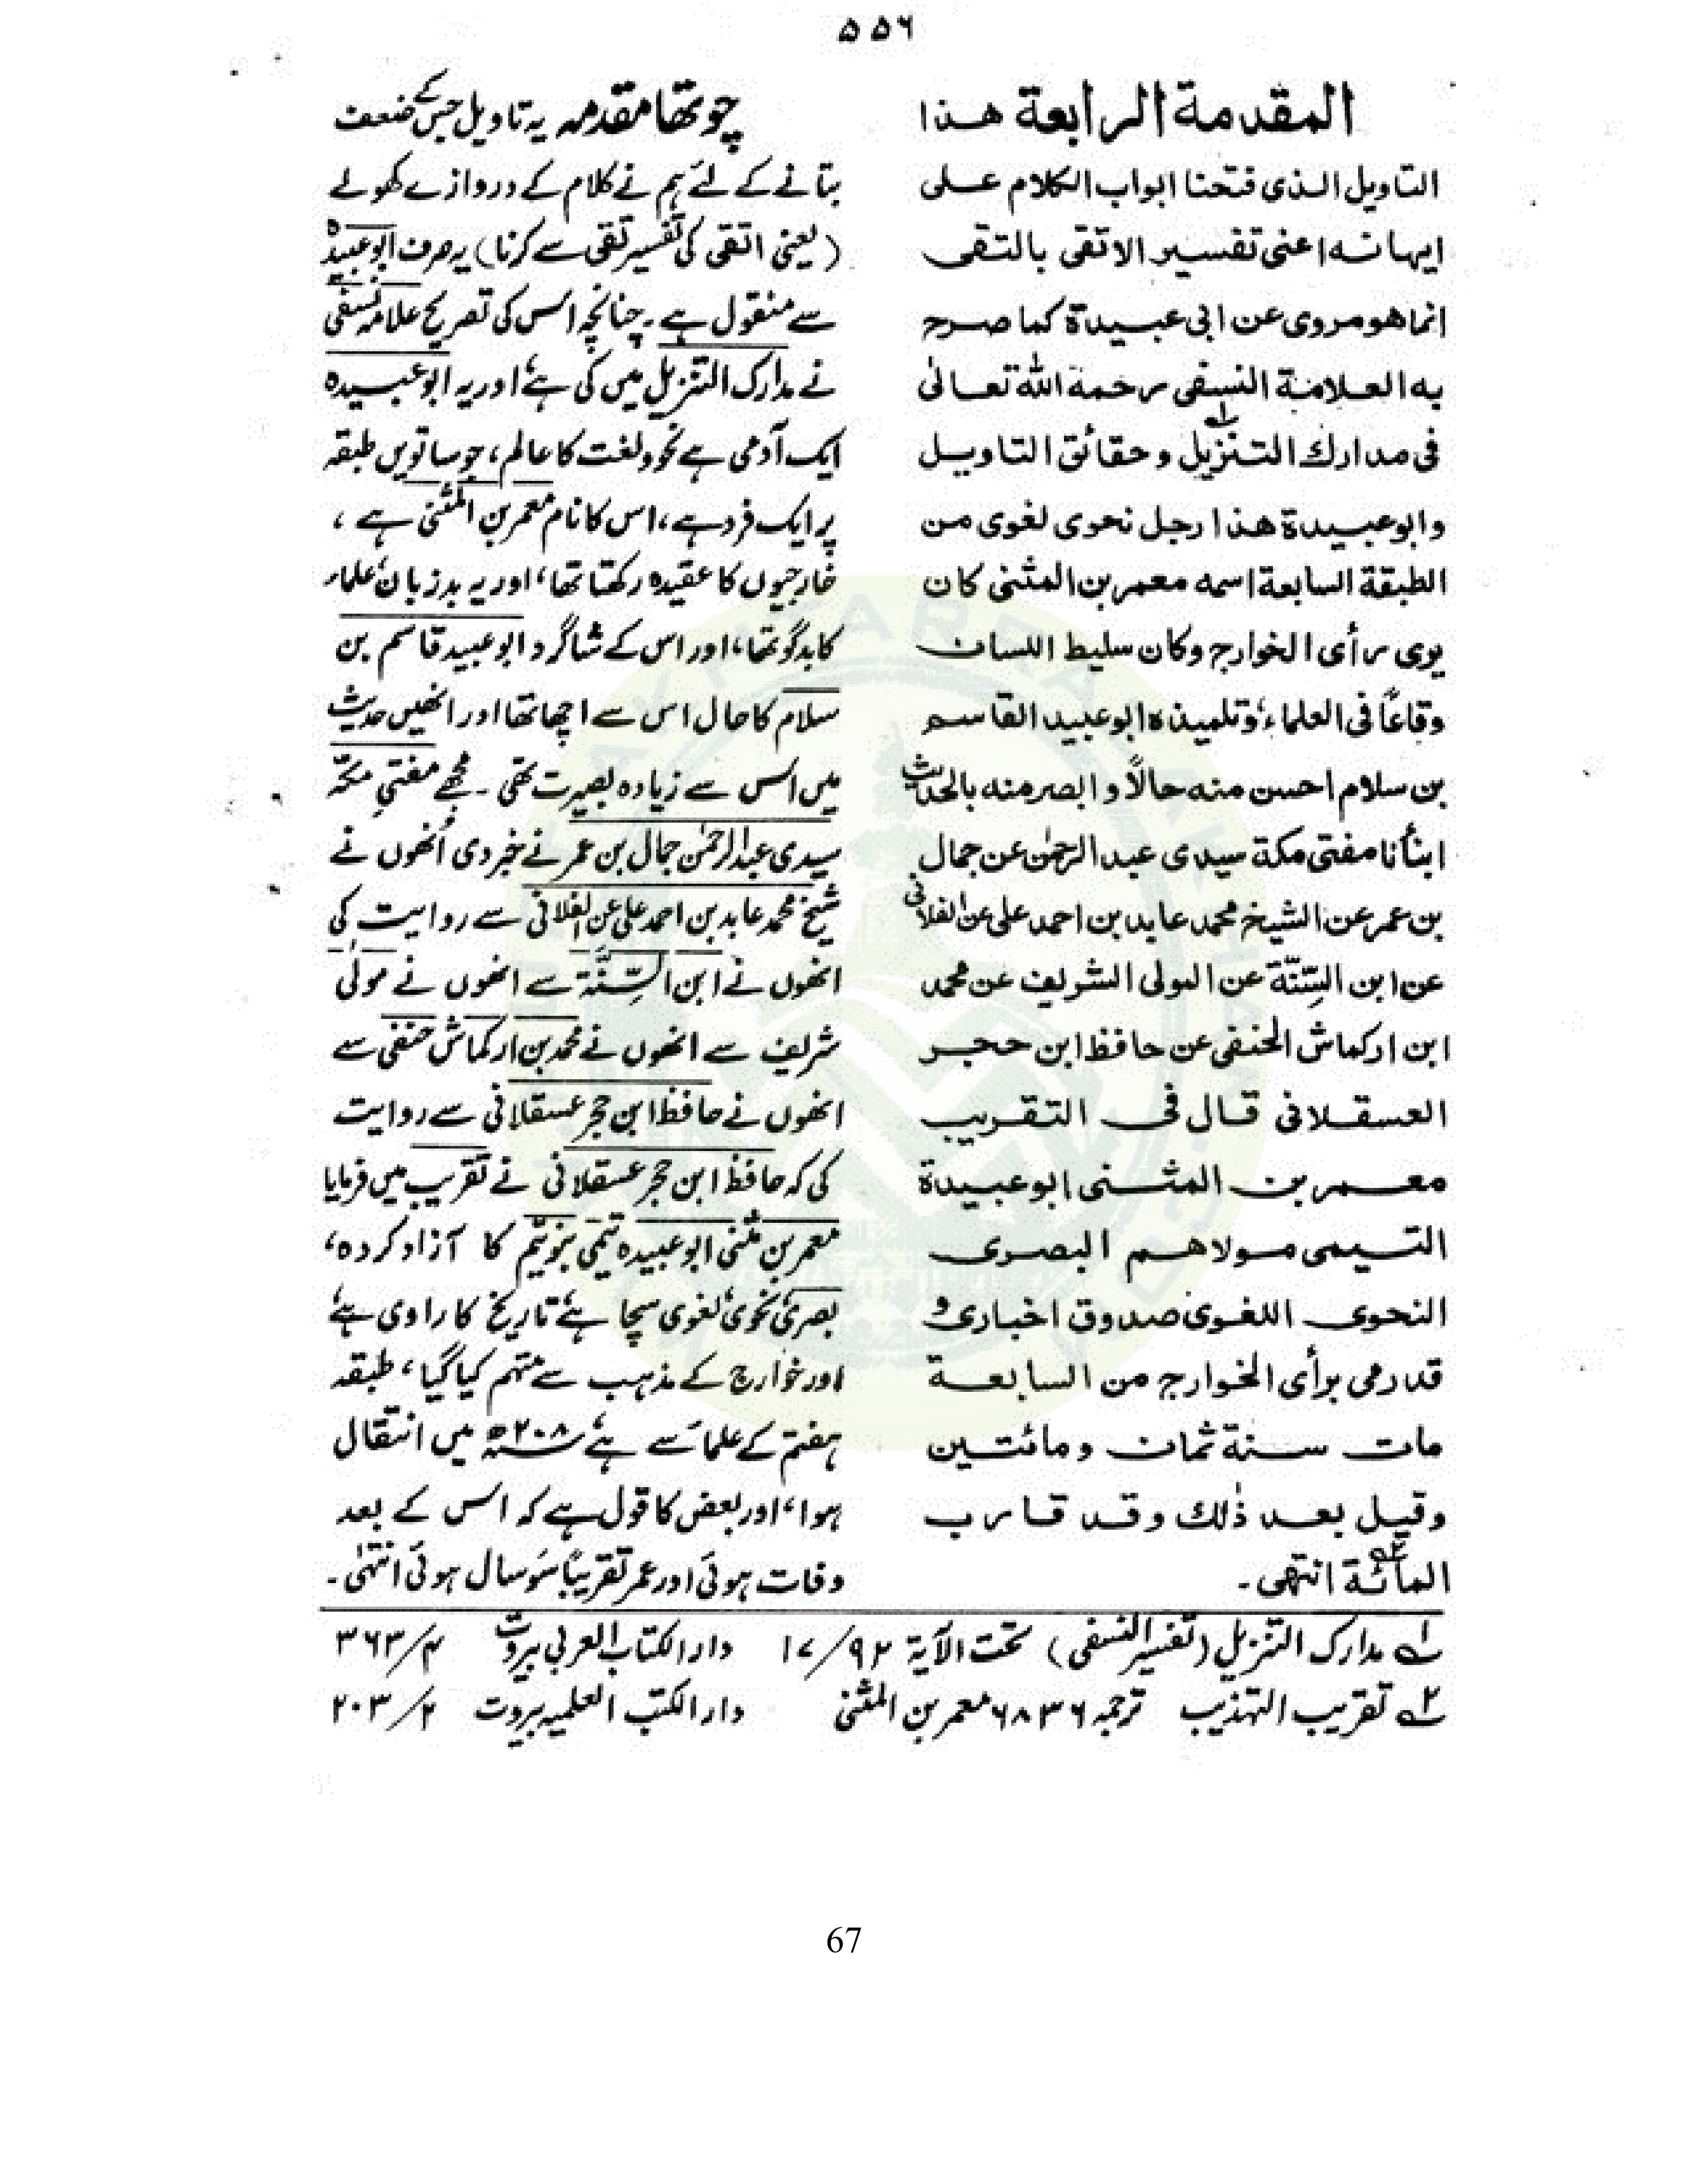 ۵۵۶
المقدمة الرابعة هذا
التاويل الذى فتحنا ابواب الكلام على
ايهانه اعنى تفسير الاتقى بالتقى
انما هو مروى عن ابى عبيدة كما صرح
به العلامة النسفى رحمة الله تعالىٰ
فى مدارك التنزيل وحقائق التاويل
وابوعبيدة هذا رجل نحوى لغوى من
الطبقة السابعة اسمه معمر بن المثنى كان
يرى رأى الخوارج وكان سليط اللسان
وقاعًا فى العلماء، وتلميذه ابوعبيد القاسم
بن سلام احسن منه حالًا و ابصر منه بالحديث
انبأنا مفتى مكة سيدى عبد الرحمٰن عن جمال
بن عمر عن الشيخ محمد عابد بن احمد على عن الفلانى
عن ابن السِّنّة عن المولى الشريف عن محمد
ابن اركماش الحنفى عن حافظ ابن حجر
العسقلانى قال فى التقريب
معمر بن المثنى ابوعبيدة
التيمى مولاهم البصرى
النحوى اللغوى صدوق اخبارى و
قد رمى برأى الخوارج من السابعة
مات سنة ثمان ومائتين
وقيل بعد ذٰلك وقد قارب
المائة ٢ انتهى۔
چوتھا مقدمہ یہ تاویل جس کے ضعف
بتانے کے لئے ہم نے کلام کے دروازے کھولے
(یعنی اتقی کی تفسیر تقی سے کرنا) یہ صرف ابوعبیدہ
سے منقول ہے۔ چنانچہ اس کی تصریح علامہ نسفی
نے مدارک التنزیل میں کی ہے، اور یہ ابوعبیدہ
ایک آدمی ہے نحو و لغت کا عالم، جو ساتویں طبقہ
پر ایک فرد ہے، اس کا نام معمر بن المثنی ہے،
خارجیوں کا عقیدہ رکھتا تھا، اور یہ بدزبان، علماء
کا بدگو تھا، اور اس کے شاگرد ابوعبید قاسم بن
سلام کا حال اس سے اچھا تھا اور انھیں حدیث
میں اس سے زیادہ بصیرت تھی۔ مجھے مفتیِ مکّہ
سیدی عبدالرحمٰن جمال بن عمر نے خبر دی اُنھوں نے
شیخ محمد عابد بن احمد علی عن الفلانی سے روایت کی
انھوں نے ابن السِّنّۃ سے انھوں نے مولٰی
شریف سے انھوں نے محمد بن ارکماش حنفی سے
انھوں نے حافظ ابن حجر عسقلانی سے روایت
کی کہ حافظ ابن حجر عسقلانی نے تقریب میں فرمایا
معمر بن مثنی ابوعبیدہ تیمی بنو تیم کا آزاد کردہ،
بصری، نحوی، لغوی سچا ہے، تاریخ کا راوی ہے،
اور خوارج کے مذہب سے متہم کیا گیا، طبقہ
ہفتم کے علماء سے ہے، ۲۰۸ھ میں انتقال
ہوا، اور بعض کا قول ہے کہ اس کے بعد
وفات ہوئی اور عمر تقریباً سَو سال ہوئی انتہٰی۔
۱؎ مدارک التنزیل (تفسیر النسفی) تحت الآیۃ ۹۲/۱۷ دار الکتاب العربی بیروت ۴/۳۶۳
۲؎ تقریب التہذیب ترجمہ ۶۸۳۶ معمر بن المثنی دار الکتب العلمیہ بیروت ۲/۲۰۳
67